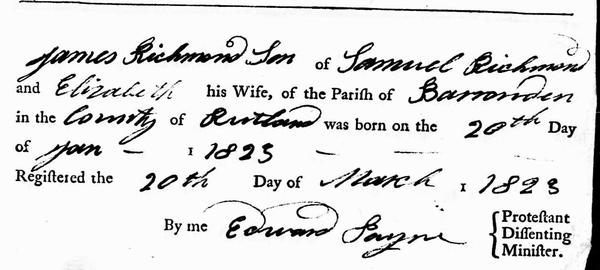 James Richmond Son of Samuel Richmond
and Elizabeth his Wife, of the Parish of Barrowden
in the County of Rutland was born on the 20th Day
of Jan — 1 1823 — —
Registered the 20th Day of March 1 1823
By me Edward Payne { Protestant
Dissenting
Minister.